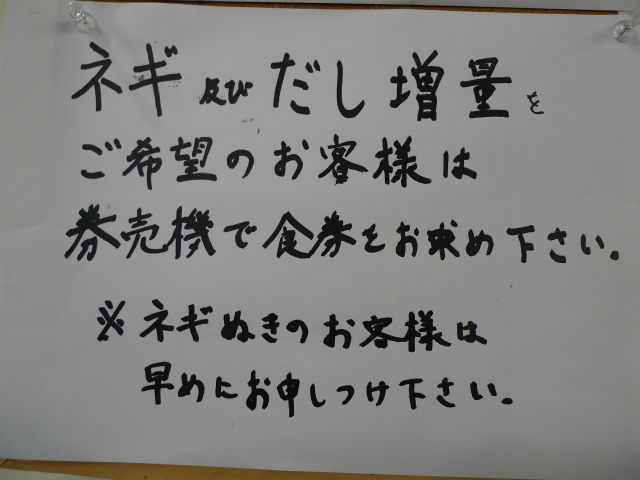 ネギ及びだし増量を
ご希望のお客様は
券売機で食券をお求め下さい。
※ネギぬきのお客様は
早めにお申しつけ下さい。